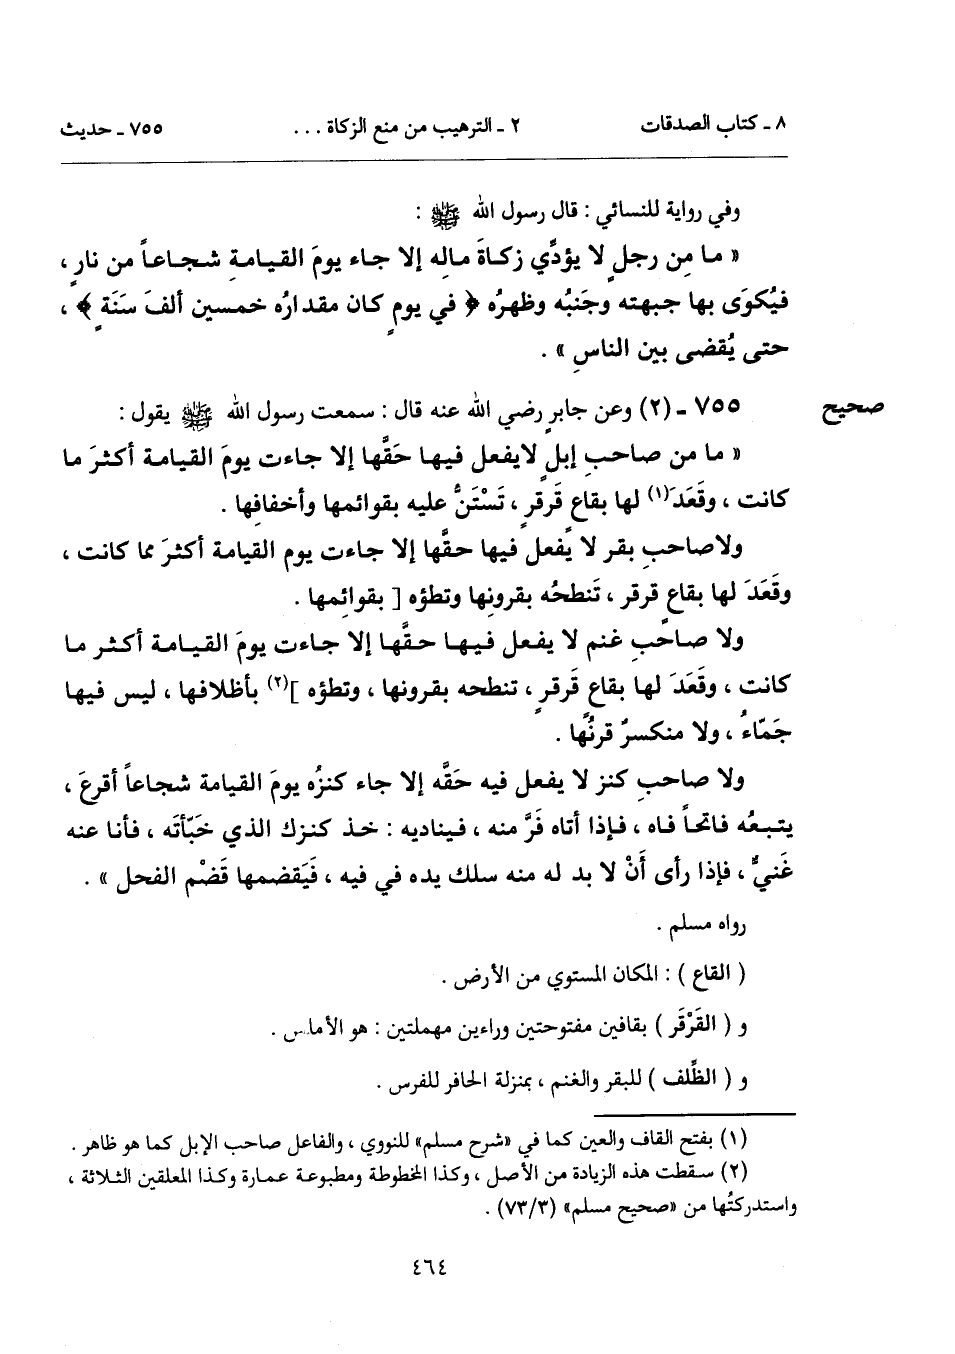 ٨ ـ كتاب الصدقات ٢ ـ الترهيب من منع الزكاة . . . ٧٥٥ ـ حديث
وفي رواية للنسائي : قال رسول الله ﷺ :
« ما مِن رجلٍ لا يؤدِّي زكاةَ مالِه إلا جاء يومَ القيامةِ شجاعاً من نارٍ ،
فيُكوَى بها جبهته وجَنبُه وظهرُه ﴿ في يومٍ كان مقدارُه خمسين ألفَ سَنَةٍ ﴾ ،
حتى يُقضى بين الناسِ » .
صحيح ٧٥٥ ـ (٢) وعن جابرٍ رضي الله عنه قال : سمعت رسول الله ﷺ يقول :
« ما من صاحبِ إبلٍ لايفعل فيها حَقَّها إلا جاءت يومَ القيامة أكثرَ ما
كانت ، وقَعَدَ (١) لها بقاعٍ قَرقرٍ ، تَسْتَنُّ عليه بقوائمها وأخفافِها .
ولاصاحبِ بقر لا يَفعل فيها حقَّها إلا جاءت يوم القيامة أكثرَ مما كانت ،
وقَعَدَ لها بقاعٍ قرقر ، تَنطحُه بقرونِها وتطؤه [ بقوائِمها .
ولا صاحبِ غنم لا يفعل فيها حقَّها إلا جاءت يومَ القيامة أكثر ما
كانت ، وقَعَدَ لها بقاعٍ قَرقرٍ ، تنطحه بقرونها ، وتطؤه ](٢) بأظلافها ، ليس فيها
جَمّاءُ ، ولا منكسرٌ قرنُها .
ولا صاحبِ كنز لا يفعل فيه حَقَّه إلا جاء كنزُه يومَ القيامة شجاعاً أقرعَ ،
يتبعُه فاتحاً فاه ، فإذا أتاه فَرَّ منه ، فيناديه : خذ كنزك الذي خَبَّأتَه ، فأنا عنه
غَنيٌّ ، فإذا رأى أَنْ لا بد له منه سلك يده في فيه ، فَيَقضمها قَضْم الفحل » .
رواه مسلم .
( القاع ) : المكان المستوي من الأرض .
و ( القَرْقَر ) بقافين مفتوحتين وراءين مهملتين : هو الأملس .
و ( الظِّلف ) للبقر والغنم ، بمنزلة الحافر للفرس .
(١) بفتح القاف والعين كما في «شرح مسلم» للنووي ، والفاعل صاحب الإبل كما هو ظاهر .
(٢) سقطت هذه الزيادة من الأصل ، وكذا المخطوطة ومطبوعة عمارة وكذا المعلقين الثلاثة ،
واستدركتُها من «صحيح مسلم» (٧٣/٣) .
٤٦٤